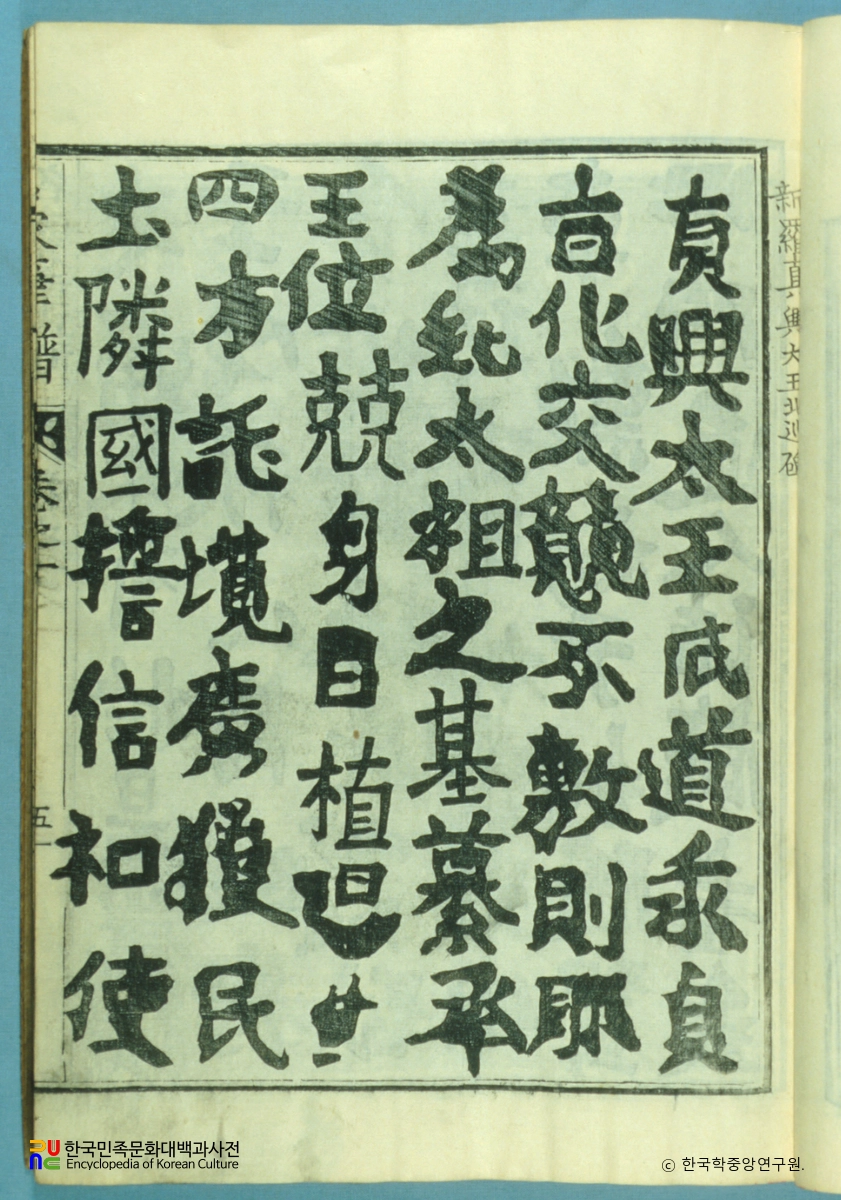 新羅真興大王北巡碑
真興太王道乖真
化交競不敷則耶
為紕太祖之基纂承
王位兢身日植廻世
四方託境廣獲民
土隣國誓信和使
筆譜 卷之 五
한국민족문화대백과사전
Encyclopedia of Korean Culture
ⓒ 한국학중앙연구원.